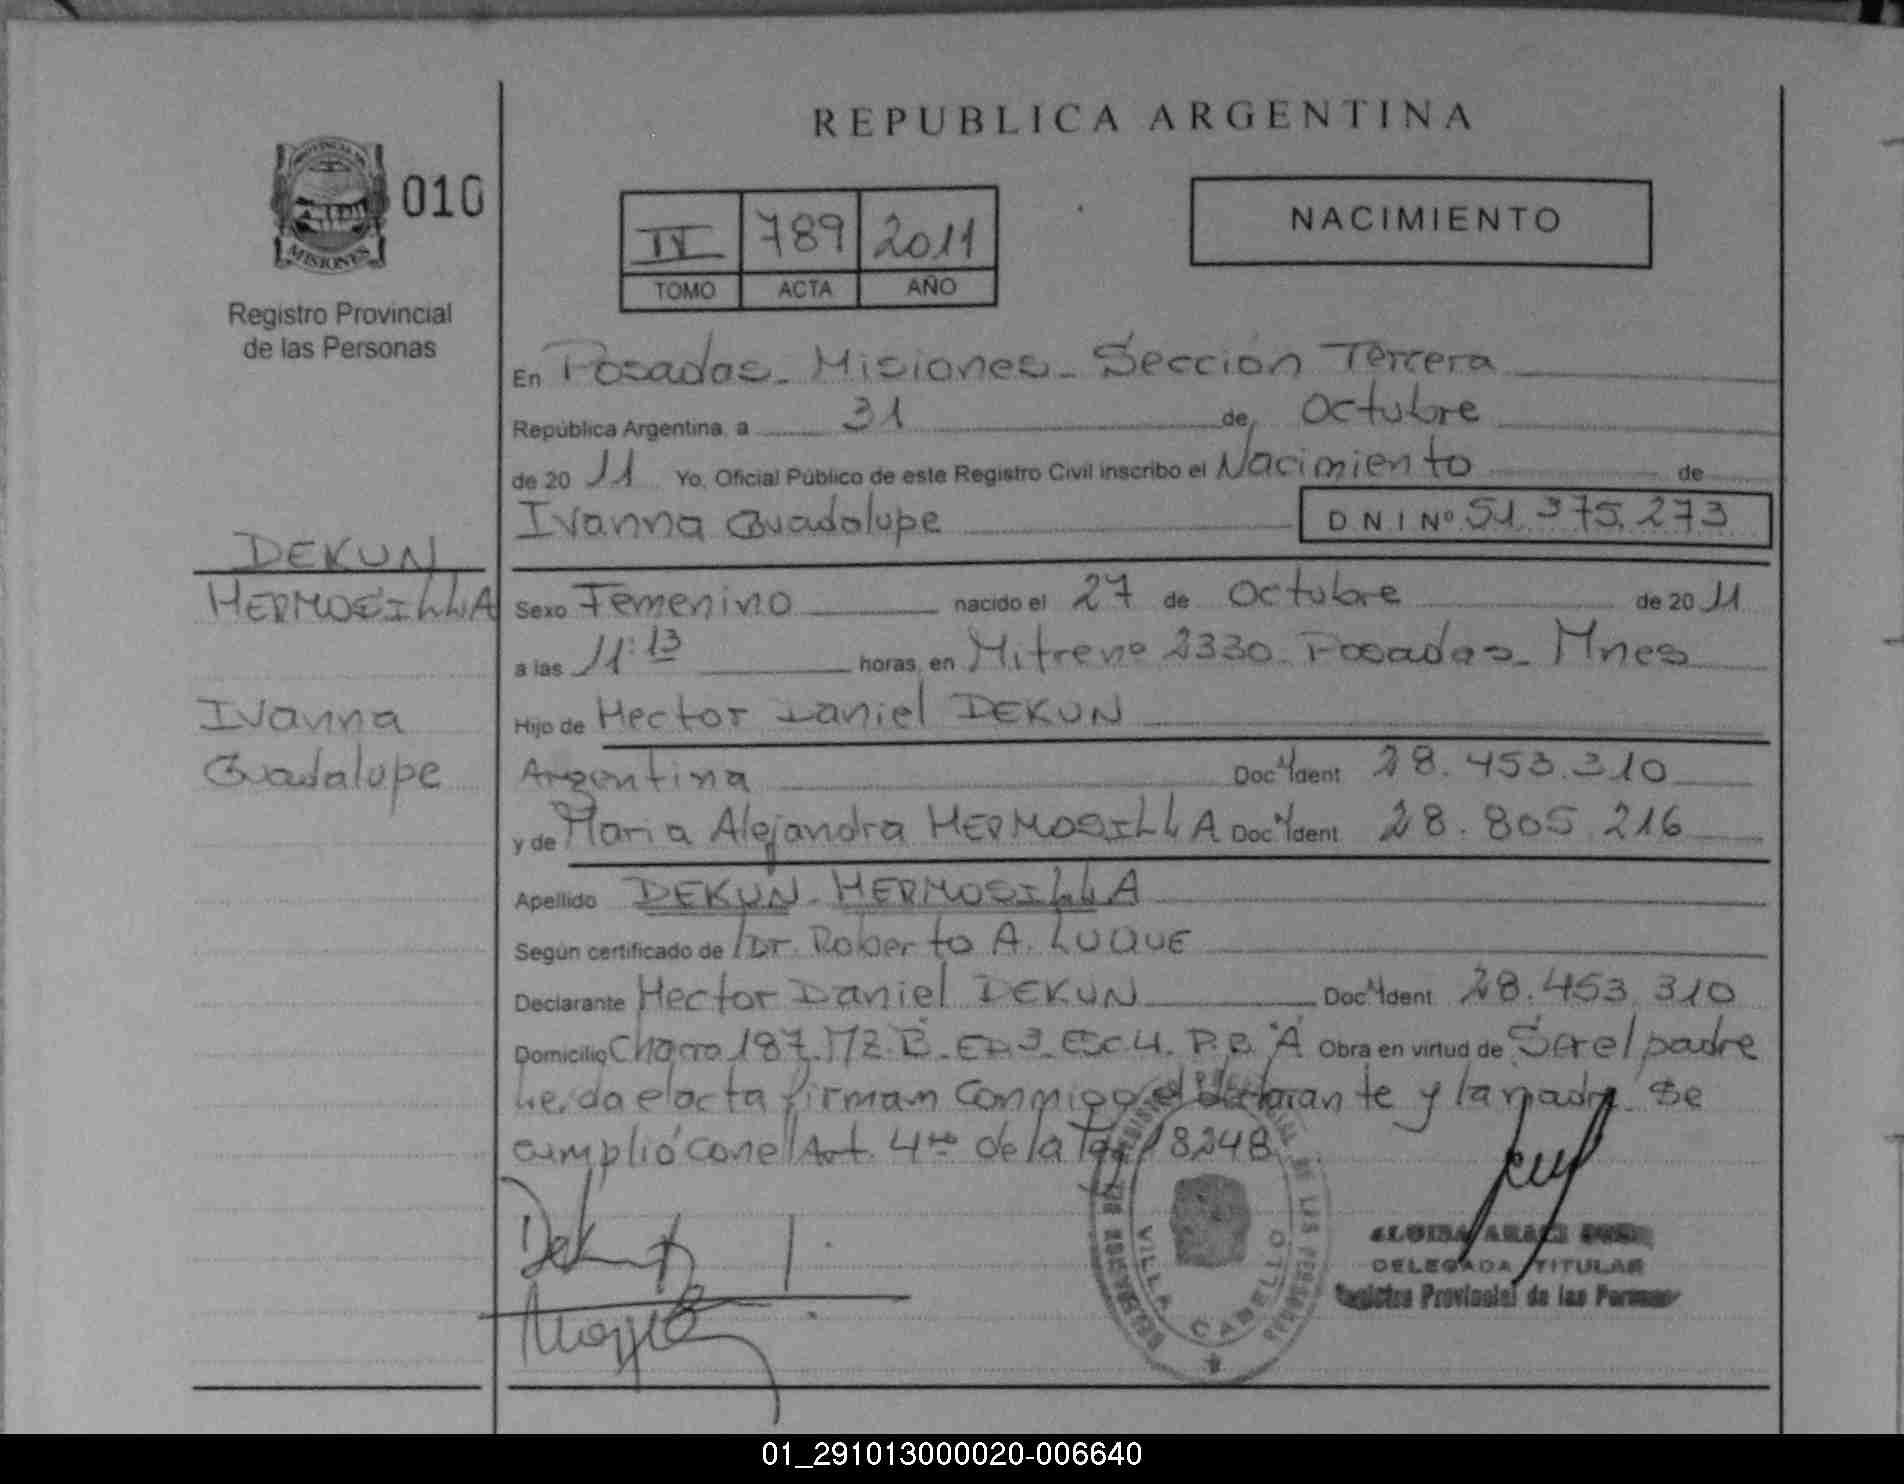 REPUBLICA ARGENTINA
PROVINCIA DE
MISIONES
010
Registro Provincial
de las Personas
IV 789 2011
TOMO ACTA AÑO
NACIMIENTO
En Posadas - Misiones - Sección Tercera
República Argentina, a 31 de Octubre
de 20 11 Yo, Oficial Público de este Registro Civil inscribo el Nacimiento de
Ivanna Guadalupe DNI Nº 51.375.273
DEKUN
HERMOSILLA
Ivanna
Guadalupe
Sexo Femenino nacido el 27 de Octubre de 20 11
a las 11:13 horas, en Mitre nº 2330 - Posadas - Mnes
Hijo de Hector Daniel DEKUN
Argentina Doc. Ident. 28.453.310
y de Maria Alejandra HERMOSILLA Doc. Ident. 28.805.216
Apellido DEKUN - HERMOSILLA
Según certificado de Dr. Roberto A. LUQUE
Declarante Hector Daniel DEKUN Doc. Ident. 28.453.310
Domicilio Chacra 187. MZ. B. ED. 3. Esc. 4. P.B. "A" Obra en virtud de Ser el padre
Leida el acta firman conmigo el declarante y la madre. Se
cumplió con el Art. 4to de la Ley 18248.
Dekun
VILLA CABELLO
DE LAS PERSONAS
DELEGADA TITULAR
Registro Provincial de las Personas
01_291013000020-006640